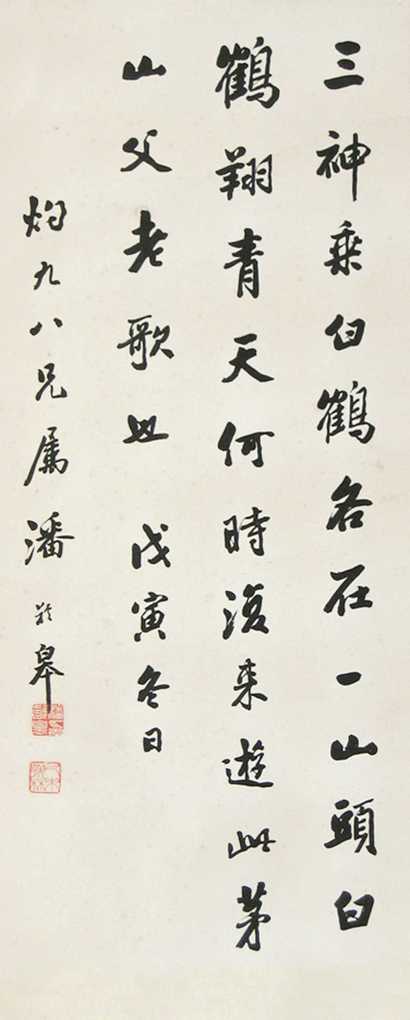 三神乘白鶴各在一山頭白
鶴翔青天何時復來遊此茅
山父老歌也 戊寅冬日
灼九八兄属潘龄皋